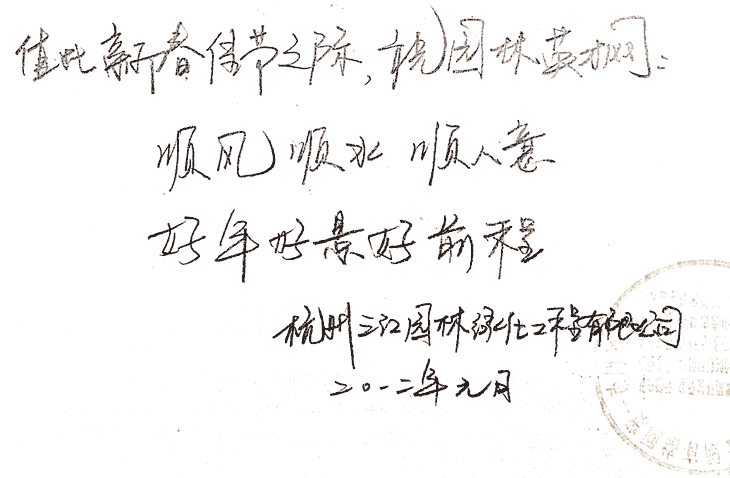 值此新春佳节之际,祝园林英才网:
顺风顺水 顺人意
好年好景好前程
杭州三江园林绿化工程有限公司
二〇一二年元月